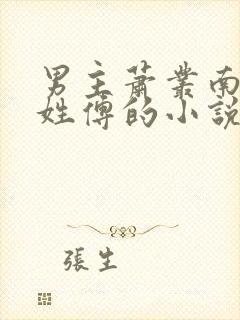 男主蕭叢南
姓傅的小說
張生